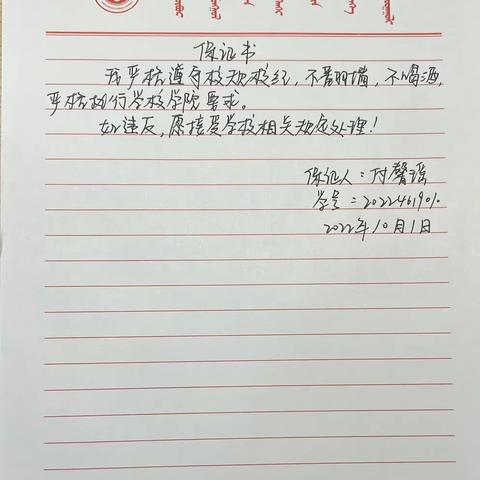 保证书
我严格遵守校规校纪，不翻墙，不喝酒，
严格执行学校学院要求。
如违反，愿接受学校相关规定处理！
保证人：付馨瑶
学号：
2022年10月1日